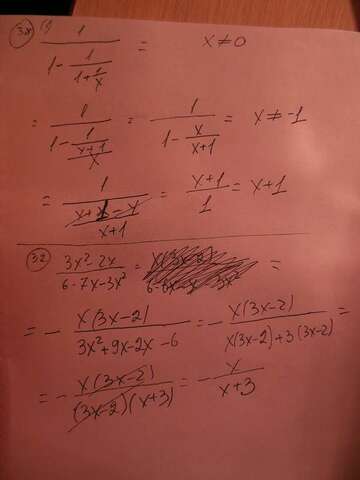 38 (1) 1/(1-1/(1+1/x)) = x≠0
= 1/(1-1/((x+1)/x)) = 1/(1-x/(x+1)) = x≠-1
= 1/((x+1-x)/(x+1)) = (x+1)/1 = x+1
32 (3x²-2x)/(6-7x-3x²) = =
= - x(3x-2)/(3x²+9x-2x-6) = - x(3x-2)/(x(3x-2)+3(3x-2)) =
= - x(3x-2)/((3x-2)(x+3)) = - x/(x+3)